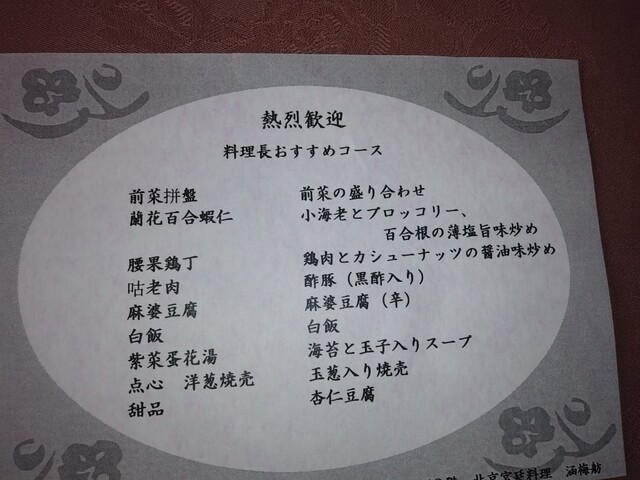 熱烈歓迎
料理長おすすめコース
前菜拼盤 前菜の盛り合わせ
蘭花百合蝦仁 小海老とブロッコリー、
百合根の薄塩旨味炒め
腰果鶏丁 鶏肉とカシューナッツの醤油味炒め
咕老肉 酢豚（黒酢入り）
麻婆豆腐 麻婆豆腐（辛）
白飯 白飯
紫菜蛋花湯 海苔と玉子入りスープ
点心 洋葱焼売 玉葱入り焼売
甜品 杏仁豆腐
北京宮廷料理 涵梅舫